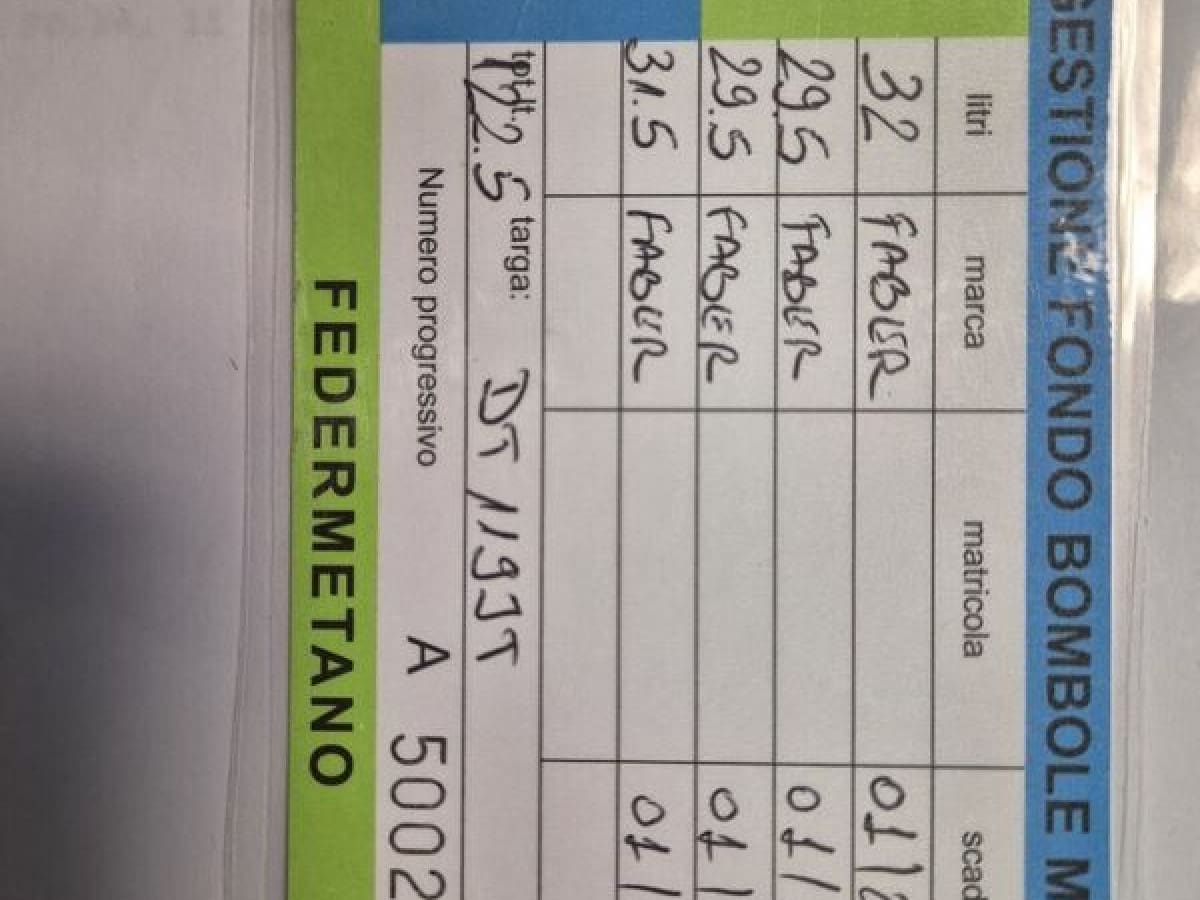 GESTIONE FONDO BOMBOLE M
litri marca matricola scad
32 FABER 01/2
29.5 FABER 01/
29.5 FABER 01/
31.5 FABER 01/
tot.lt. 122.5 targa: DT 119JT
Numero progressivo A 5002
FEDERMETANO